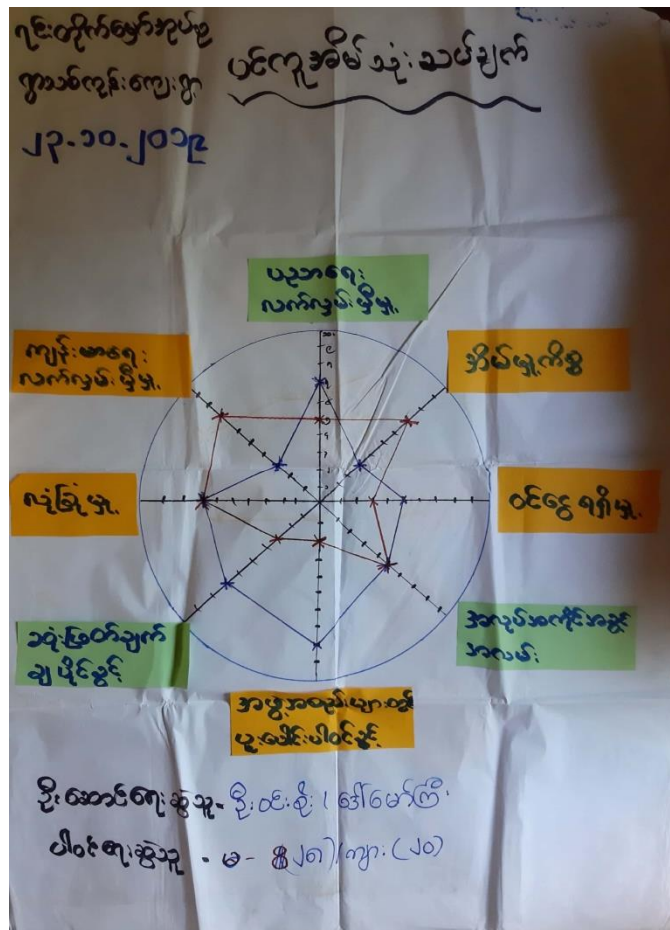 ရင်းတိုက်မှော်အုပ်စု
ရွာသစ်ကုန်းကျေးရွာ
၂၃-၁၀-၂၀၁၉
ပင့်ကူအိမ်သုံးသပ်ချက်
ပညာရေး
လက်လှမ်းမှီမှု
ကျန်းမာရေး
လက်လှမ်းမှီမှု
အိမ်မှုကိစ္စ
လုံခြုံမှု
ဝင်ငွေရရှိမှု
ဆုံးဖြတ်ချက်
ချပိုင်ခွင့်
အလုပ်အကိုင်အခွင့်
အလမ်း
အဖွဲ့အစည်းများတွင်
ပူးပေါင်းပါဝင်ခွင့်
ဦးဆောင်ရေးဆွဲသူ - ဦးဝင်းစိုး / ဒေါ်မော်ကြီး
ပါဝင်ရေးဆွဲသူ - မ - (၂၈) / ကျား (၂၀)